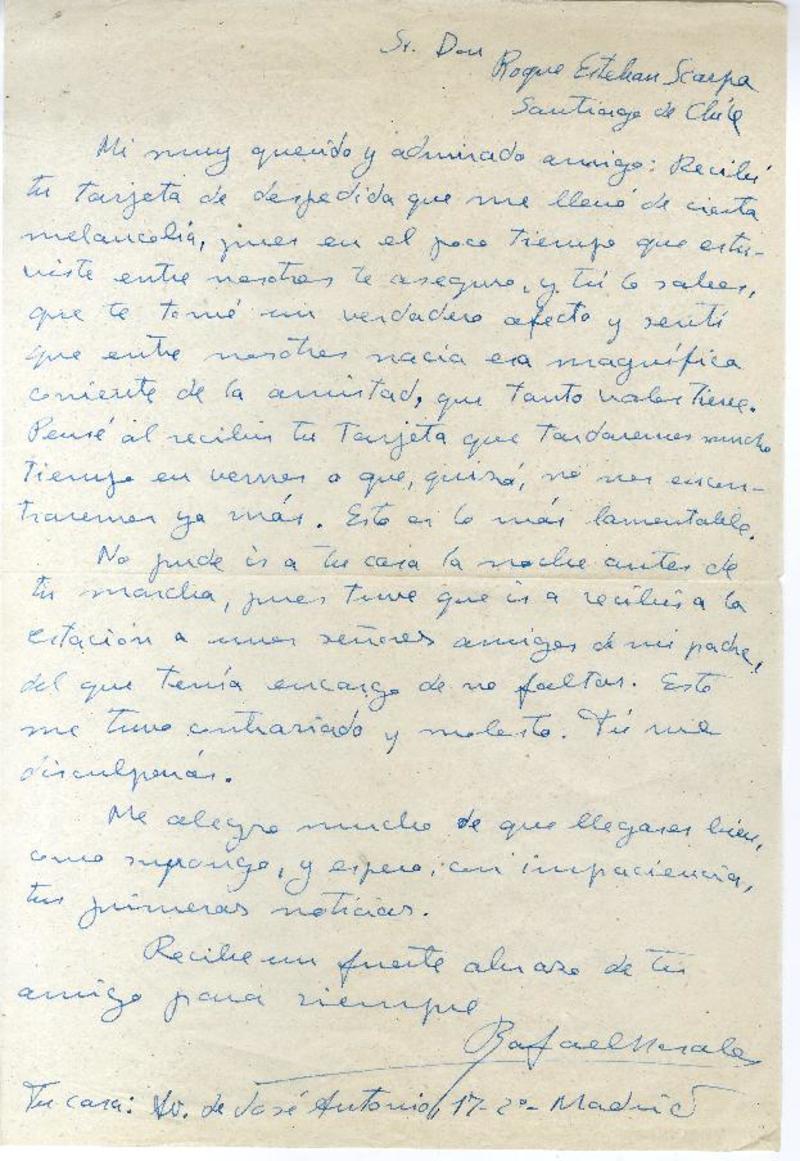 Sr. Don
Roque Esteban Scarpa
Santiago de Chile
Mi muy querido y admirado amigo: Recibí
tu tarjeta de despedida que me llenó de cierta
melancolía, pues en el poco tiempo que estu-
viste entre nosotros te aseguro, y tú lo sabes,
que te tomé un verdadero afecto y sentí
que entre nosotros nacía esa magnífica
corriente de la amistad, que tanto valor tiene.
Pensé al recibir tu tarjeta que tardaremos mucho
tiempo en vernos o que, quizá, no nos encon-
traremos ya más. Esto es lo más lamentable.
No pude ir a tu casa la noche antes de
tu marcha, pues tuve que ir a recibir a la
estación a unos señores amigos de mi padre,
del que tenía encargo de no faltar. Esto
me tuvo contrariado y molesto. Tú me
disculparás.
Me alegro mucho de que llegases bien,
como supongo, y espero, con impaciencia,
tus primeras noticias.
Recibe un fuerte abrazo de tu
amigo para siempre
Rafael Morales
Tu casa: Av. de José Antonio, 17-2º- Madrid